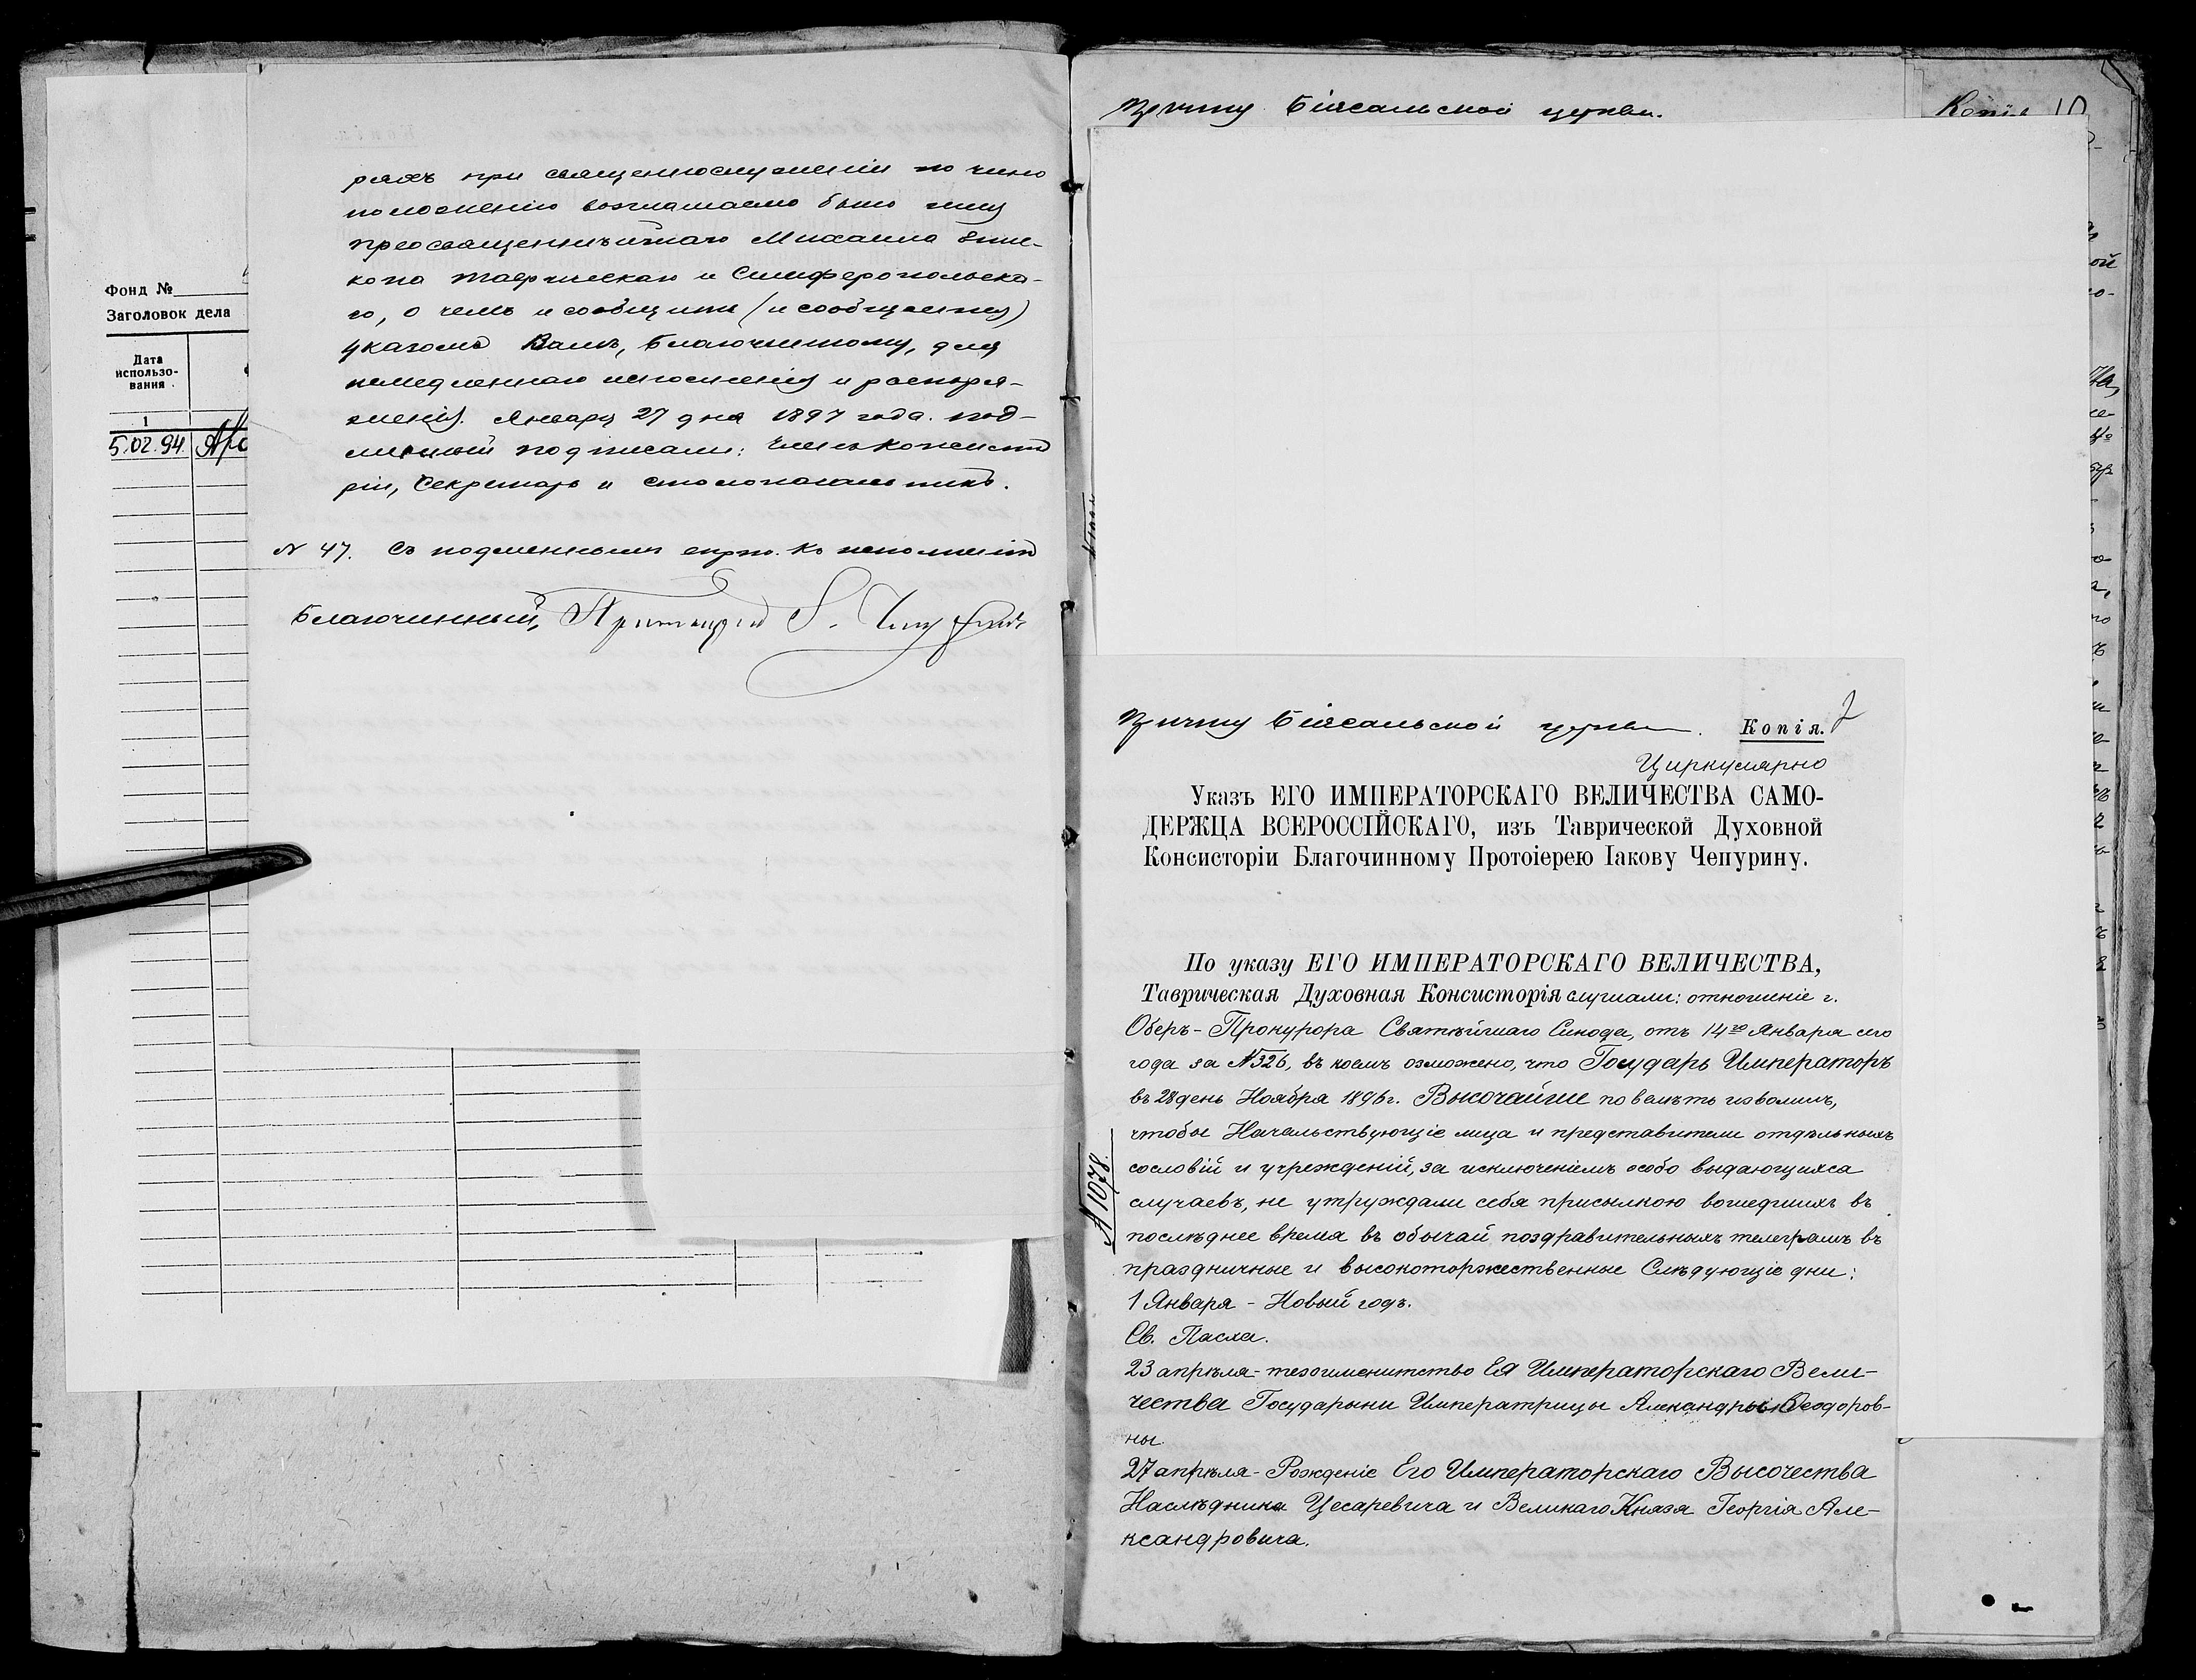 Фонд №
Заголовок дела
Дата
использо-
вания
1
5.02.94.
ряхъ при священнослуженіи по чино
положенію возглашаемо было имя
преосвященнѣйшаго Михаила Епис-
копа Таврическаго и Симферопольска-
го, о чемъ и сообщить (и сообщается)
указомъ Вамъ, Благочинному, для
немедленнаго исполненія и распоря-
женія. Января 27 дня 1897 года. Под-
линный подписали: Членъ Консисто
ріи, Секретарь и Столоначальникъ.
№ 47. Съ подлиннымъ вѣрно. Къ исполненію
Благочинный, Протоіерей І. Чепуринъ
Причту Біясальской церкви.
Копія 10
Причту Біясальской церкви. Копія. 2
Циркулярно
Указъ ЕГО ИМПЕРАТОРСКАГО ВЕЛИЧЕСТВА САМО-
ДЕРЖЦА ВСЕРОССІЙСКАГО, изъ Таврической Духовной
Консисторіи Благочинному Протоіерею Іакову Чепурину.
По указу ЕГО ИМПЕРАТОРСКАГО ВЕЛИЧЕСТВА,
Таврическая Духовная Консисторія слушали: отношеніе г.
Оберъ-Прокурора Святѣйшаго Синода, отъ 14го Января сего
года за №326, въ коемъ изложено, что Государь Императоръ
въ 28 день Ноября 1896 г. Высочайше повелѣть изволилъ,
чтобы Начальствующіе лица и представители отдѣльныхъ
сословій и учрежденій, за исключеніемъ особо выдающихся
случаевъ, не утруждали себя присылкою вошедшихъ въ
послѣднее время въ обычай поздравительныхъ телеграмъ въ
праздничные и высокоторжественные Слѣдующіе дни:
1 Января - Новый годъ.
Св. Пасха.
23 апрѣля - тезоименитство Ея Императорскаго Вели-
чества Государыни Императрицы Александры Ѳеодоров-
ны.
27 апрѣля - Рожденіе Его Императорскаго Высочества
Наслѣдника Цесаревича и Великаго Князя Георгія Але-
ксандровича.
№ 1078.